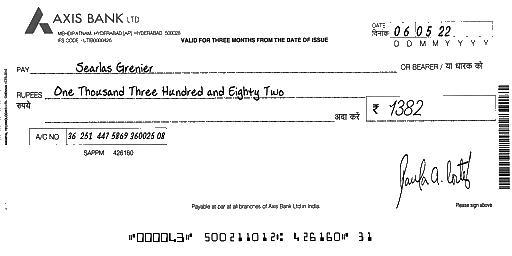 AXIS BANK LTD
MEHDIPATNAM, HYDERABAD [AP] HYDERABAD 500028
IFS CODE - UTIB0000426
VALID FOR THREE MONTHS FROM THE DATE OF ISSUE
DATE
दिनांक 06 05 22
D D M M Y Y Y Y
PAY Searlas Grenier OR BEARER / या धारक को
RUPEES One Thousand Three Hundred and Eighty Two
रुपये अदा करें ₹ 1382
A/C NO 36 251 447 5869 360025 08
SAPPM 426160
Paula A. Cortez
Payable at par at all branches of Axis Bank Ltd in India.
Please sign above
"000043" 500211012: 426160" 31